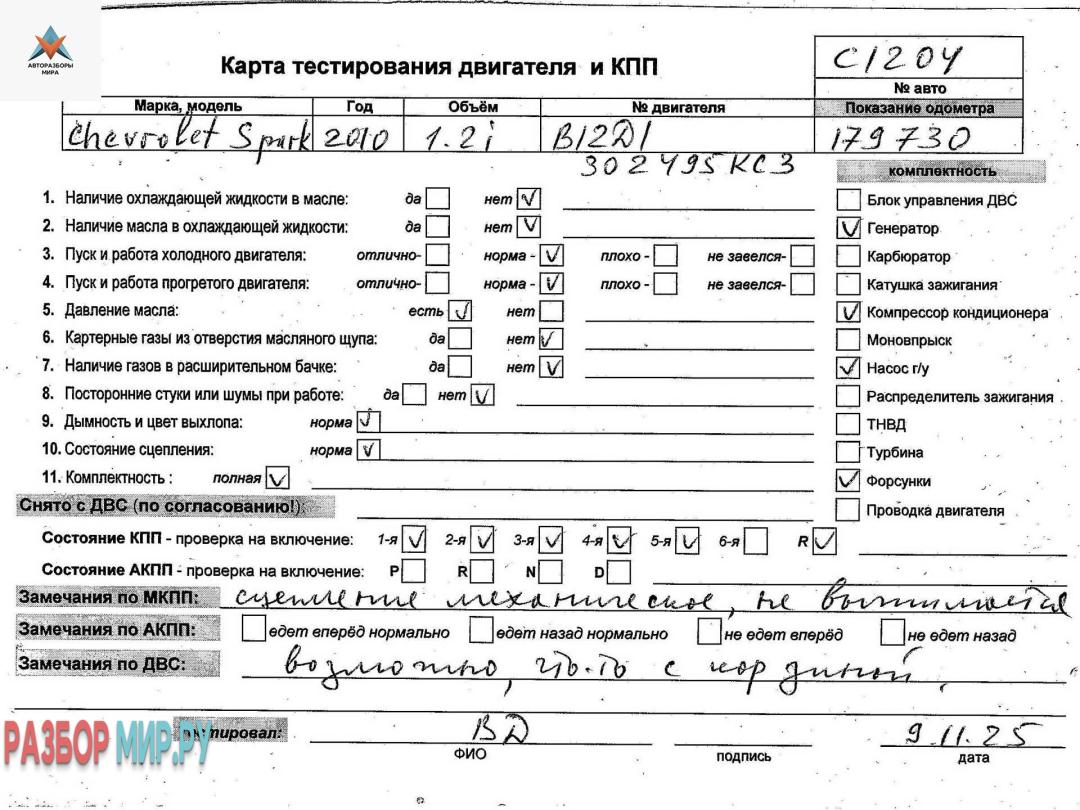 АВТОРАЗБОРЫ
МИРА
Карта тестирования двигателя и КПП
C1204
№ авто
Марка, модель Год Объём № двигателя Показание одометра
Chevrolet Spark 2010 1.2i B12D1 179730
302495KC3
комплектность
1. Наличие охлаждающей жидкости в масле: да нет Блок управления ДВС
2. Наличие масла в охлаждающей жидкости: да нет Генератор
3. Пуск и работа холодного двигателя: отлично- норма - плохо - не завелся- Карбюратор
4. Пуск и работа прогретого двигателя: отлично- норма - плохо - не завелся- Катушка зажигания
5. Давление масла: есть нет Компрессор кондиционера
6. Картерные газы из отверстия масляного щупа: да нет Моновпрыск
7. Наличие газов в расширительном бачке: да нет Насос г/у
8. Посторонние стуки или шумы при работе: да нет Распределитель зажигания
9. Дымность и цвет выхлопа: норма ТНВД
10. Состояние сцепления: норма Турбина
11. Комплектность : полная Форсунки
Снято с ДВС (по согласованию!): Проводка двигателя
Состояние КПП - проверка на включение: 1-я 2-я 3-я 4-я 5-я 6-я R
Состояние АКПП - проверка на включение: P R N D
Замечания по МКПП: сцепление механическое, не выжимается
Замечания по АКПП: едет вперёд нормально едет назад нормально не едет вперёд не едет назад
Замечания по ДВС: возможно, что-то с корзиной.
тестировал: ВД 9.11.25
ФИО подпись дата
РАЗБОРМИР.РУ